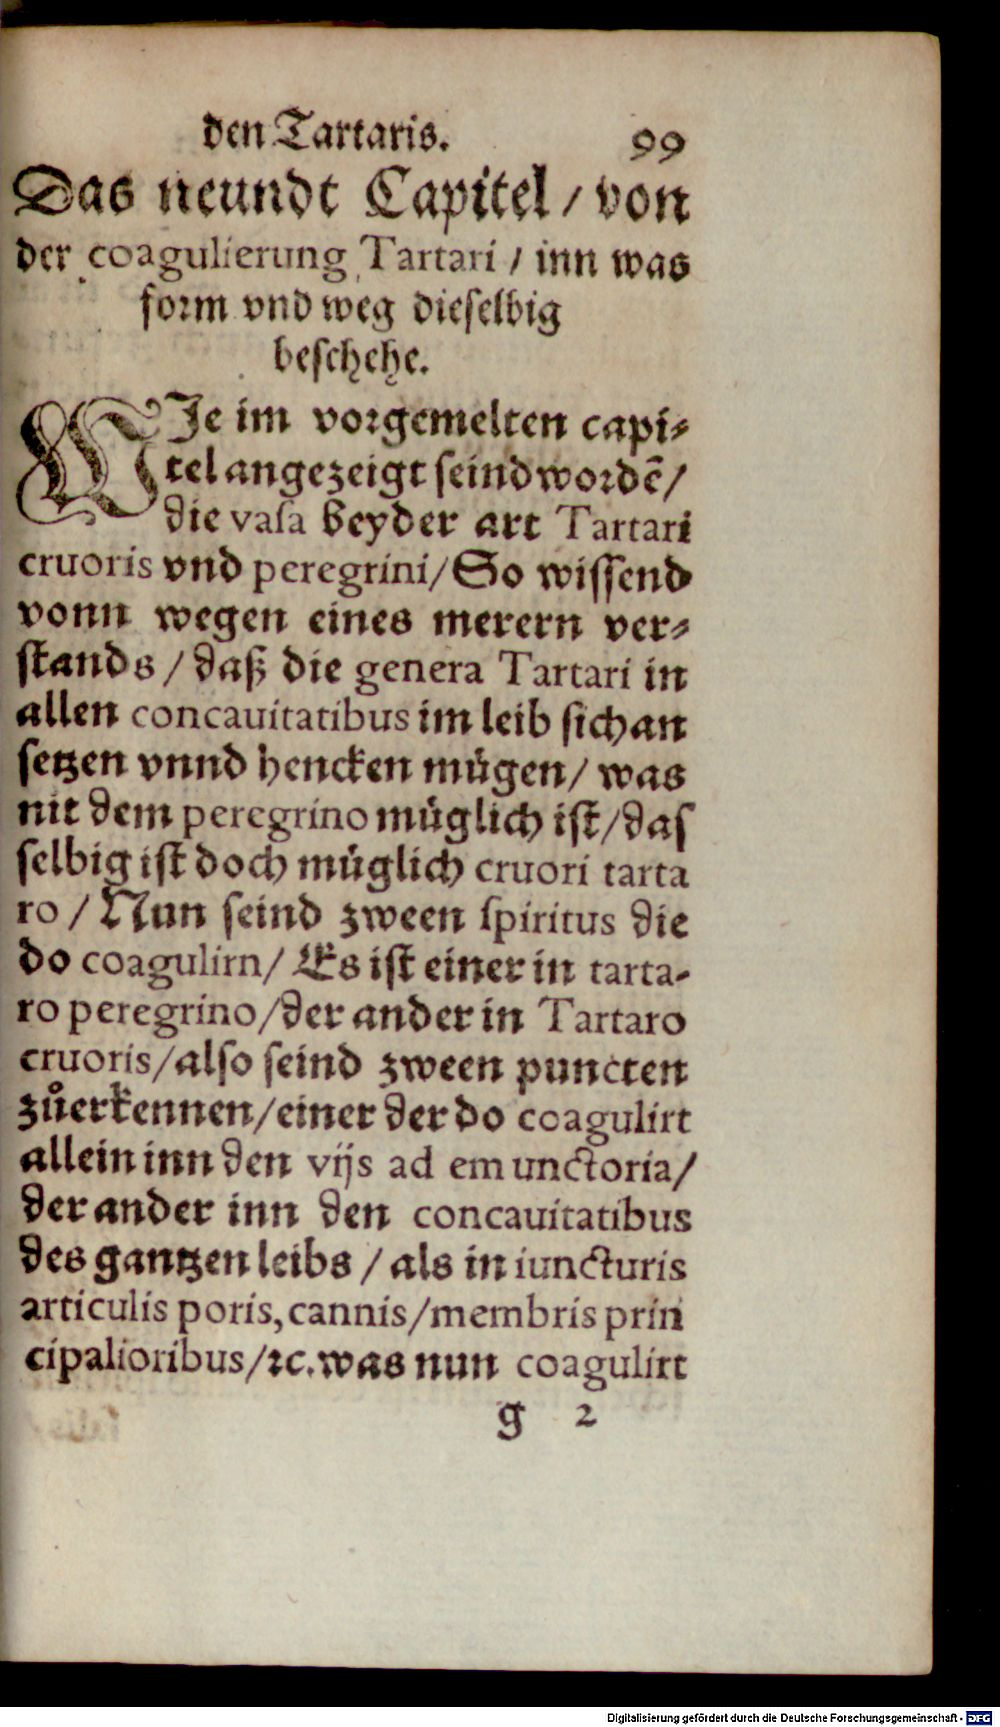 den Tartaris. 99
Das neundt Capitel / von
der coagulierung Tartari / inn was
form vnd weg dieselbig
beschehe.
WJe im vorgemelten capi⸗
tel angezeigt seind wordē /
die vasa beyder art Tartari
cruoris vnd peregrini / So wissend
vonn wegen eines merern ver⸗
stands / daß die genera Tartari in
allen concauitatibus im leib sich an
setzen vnnd hencken mügen / was
nit dem peregrino müglich ist / das
selbig ist doch müglich cruori tarta
ro / Nun seind zween spiritus die
do coagulirn / Es ist einer in tarta-
ro peregrino / der ander in Tartaro
cruoris / also seind zween puncten
zůerkennen / einer der do coagulirt
allein inn den vijs ad emunctoria /
der ander inn den concauitatibus
des gantzen leibs / als in iuncturis
articulis poris, cannis / membris prin
cipalioribus / ꝛc. was nun coagulirt
g 2
Digitalisierung gefördert durch die Deutsche Forschungsgemeinschaft - DFG